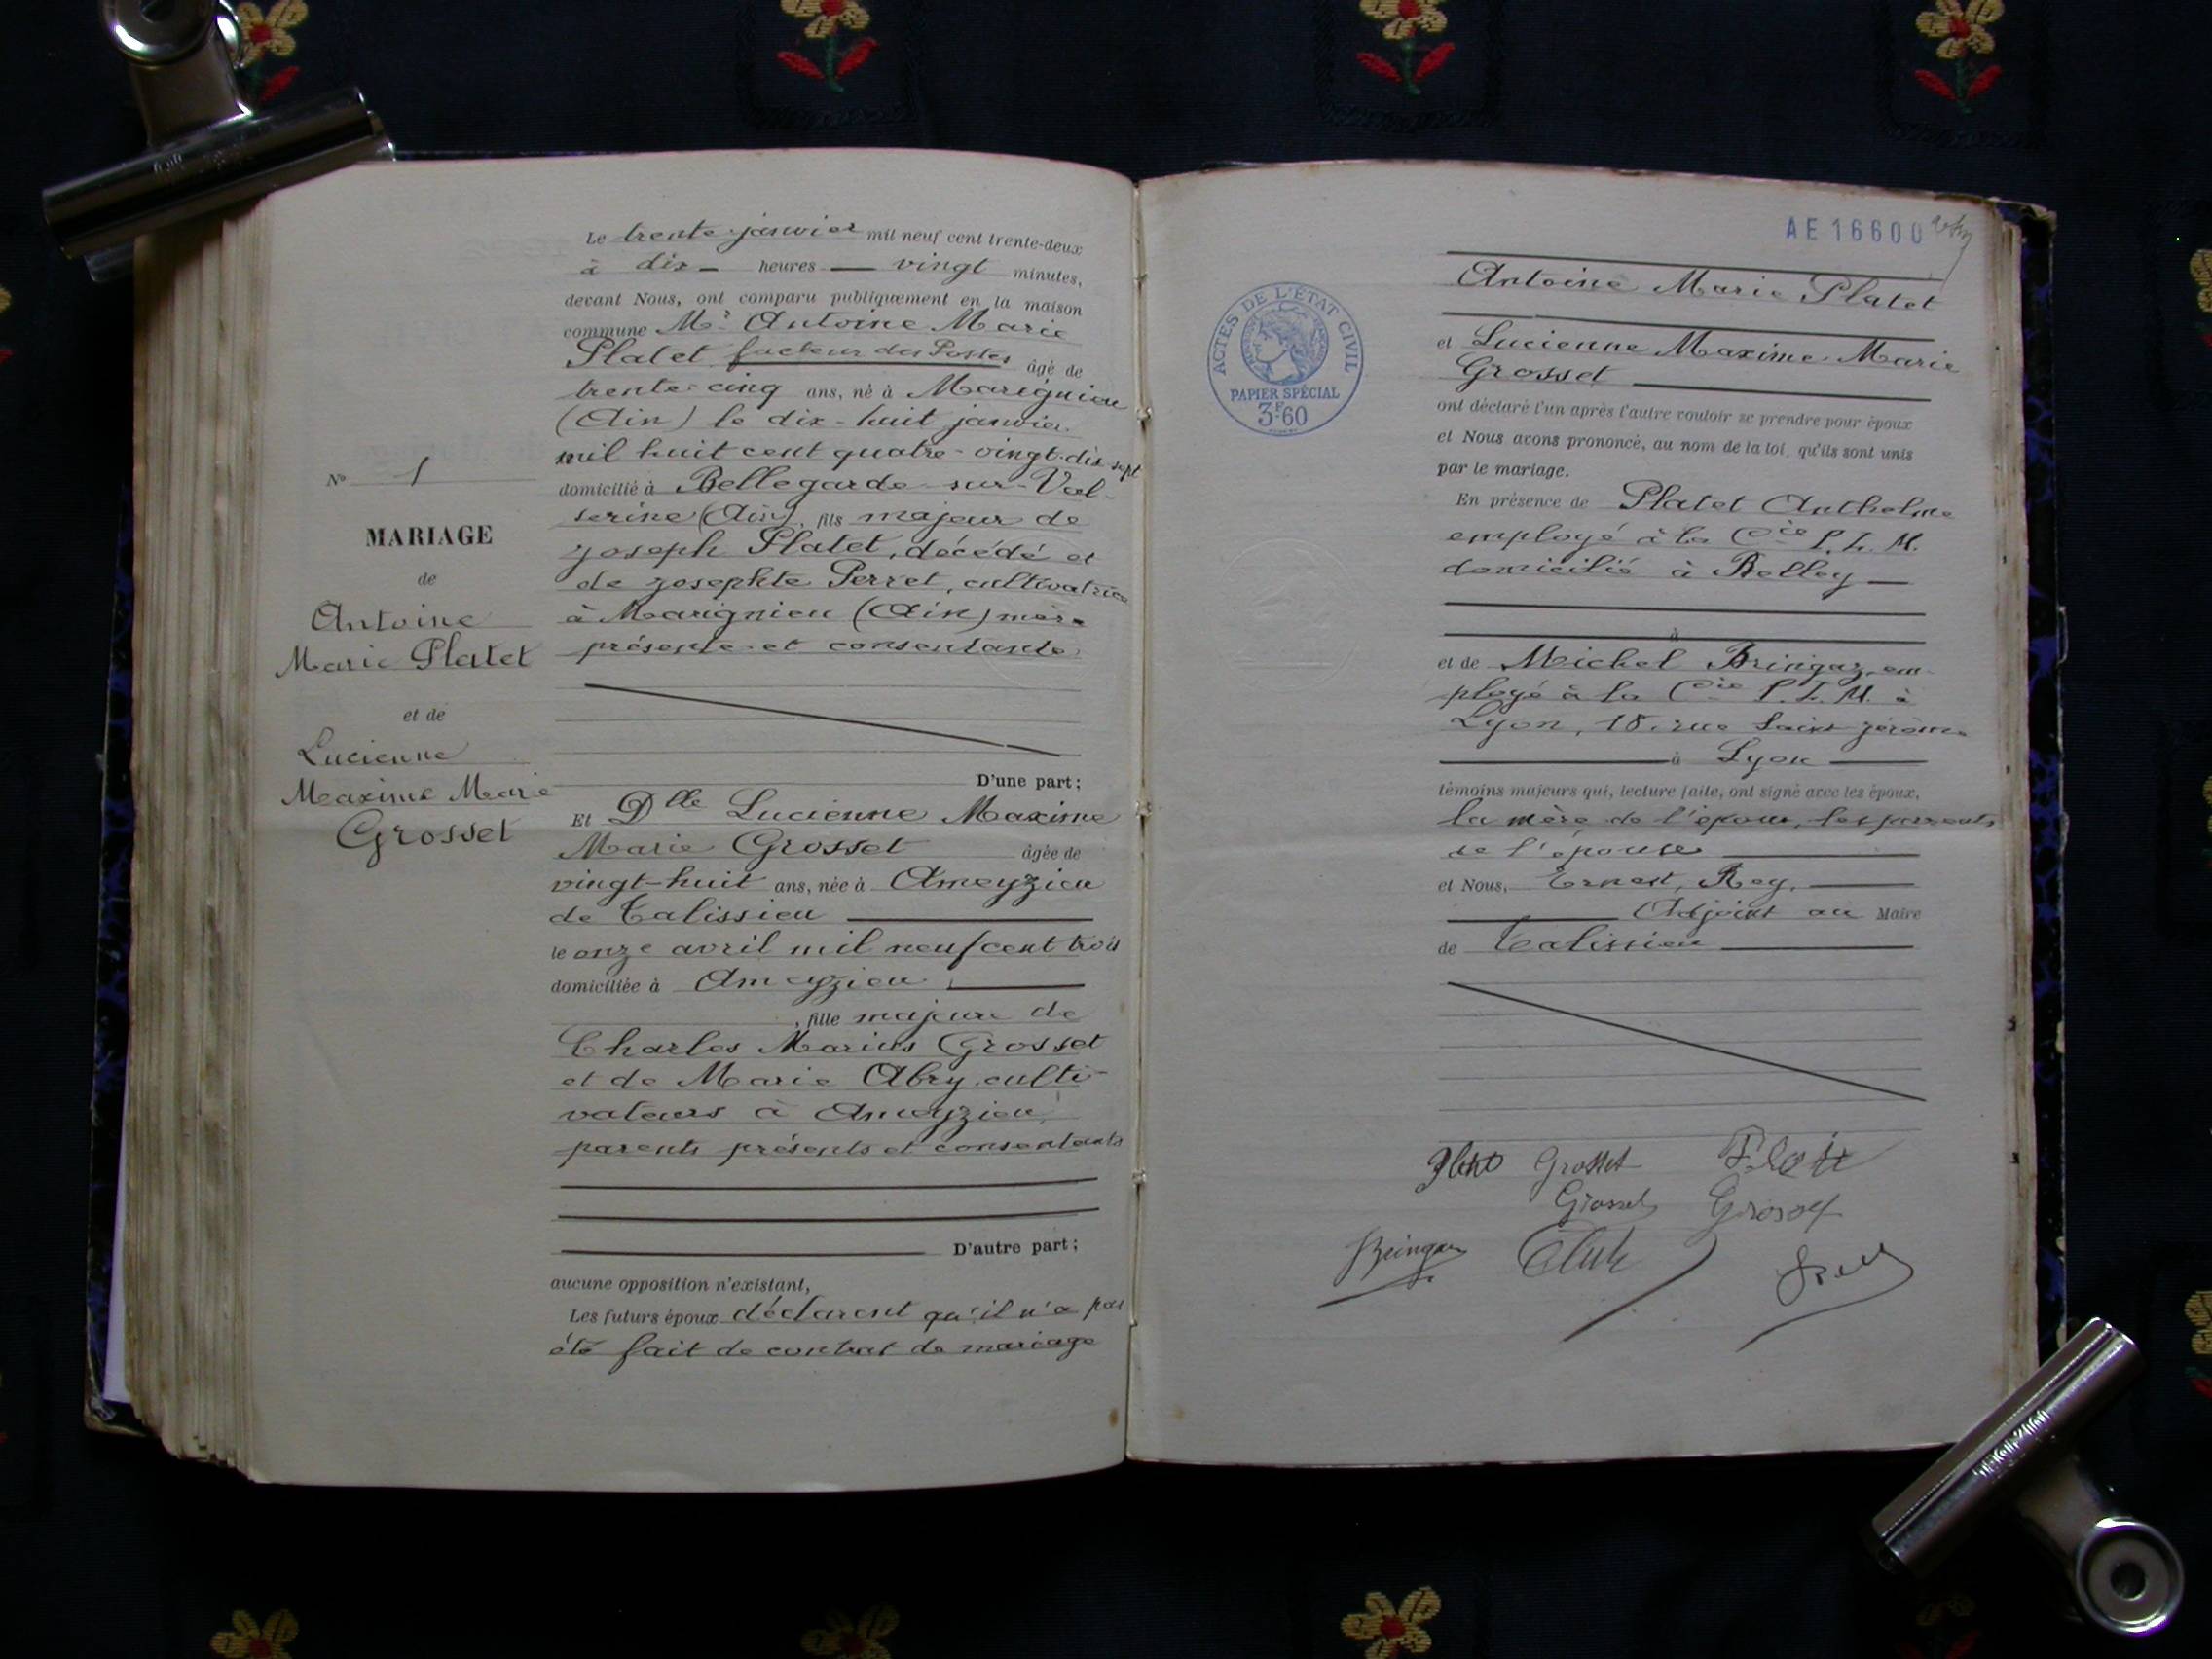 N° 1
MARIAGE
de
Antoine
Marie Platet
et de
Lucienne
Maxime Marie
Grosset
Le trente janvier mil neuf cent trente-deux
à dix heures vingt minutes,
devant Nous, ont comparu publiquement en la maison
commune Mr Antoine Marie
Platet facteur des Postes âgé de
trente-cinq ans, né à Marignieu
(Ain) le dix-huit janvier
mil huit cent quatre-vingt-dix-sept
domicilié à Bellegarde-sur-Val-
serine (Ain), fils majeur de
Joseph Platet, décédé et
de Josephte Perret, cultivatrice
à Marignieu (Ain) mère
présente et consentante
D'une part;
Et Dlle Lucienne Maxime
Marie Grosset âgée de
vingt-huit ans, née à Ameyzieu
de Talissieu
le onze avril mil neuf cent trois
domiciliée à Ameyzieu
, fille majeure de
Charles Marius Grosset
et de Marie Abry, culti-
vateurs à Ameyzieu,
parents présents et consentants
D'autre part;
aucune opposition n'existant,
Les futurs époux déclarent qu'il n'a pas
été fait de contrat de mariage
AE 16600
ACTES DE L'ÉTAT CIVIL
PAPIER SPÉCIAL
3F60
Antoine Marie Platet
et Lucienne Maxime Marie
Grosset
ont déclaré l'un après l'autre vouloir se prendre pour époux
et Nous avons prononcé, au nom de la loi, qu'ils sont unis
par le mariage.
En présence de Platet Anthelme
employé à la Cie P. L. M.
domicilié à Belley
à
et de Michel Bringaz, em-
ployé à la Cie P. L. M. à
Lyon, 18, rue Saint Jérôme
à Lyon
témoins majeurs qui, lecture faite, ont signé avec les époux,
la mère de l'époux, les parents
de l'épouse
et Nous, Ernest, Rey,
Adjoint au Maire
de Talissieu
Grosset
Grosset Grosset
Bringaz